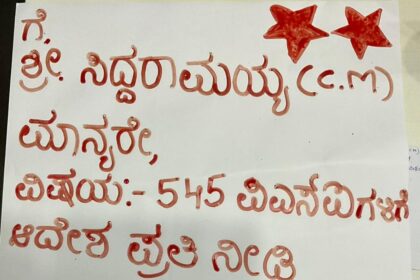 ಗೆ,
ಶ್ರೀ. ಸಿದ್ದರಾಮಯ್ಯ (C.M)
ಮಾನ್ಯರೇ,
ವಿಷಯ:- 545 ಪಿಎಸ್ಐಗಳಿಗೆ
ಆದೇಶ ಪ್ರತಿ ನೀಡಿ